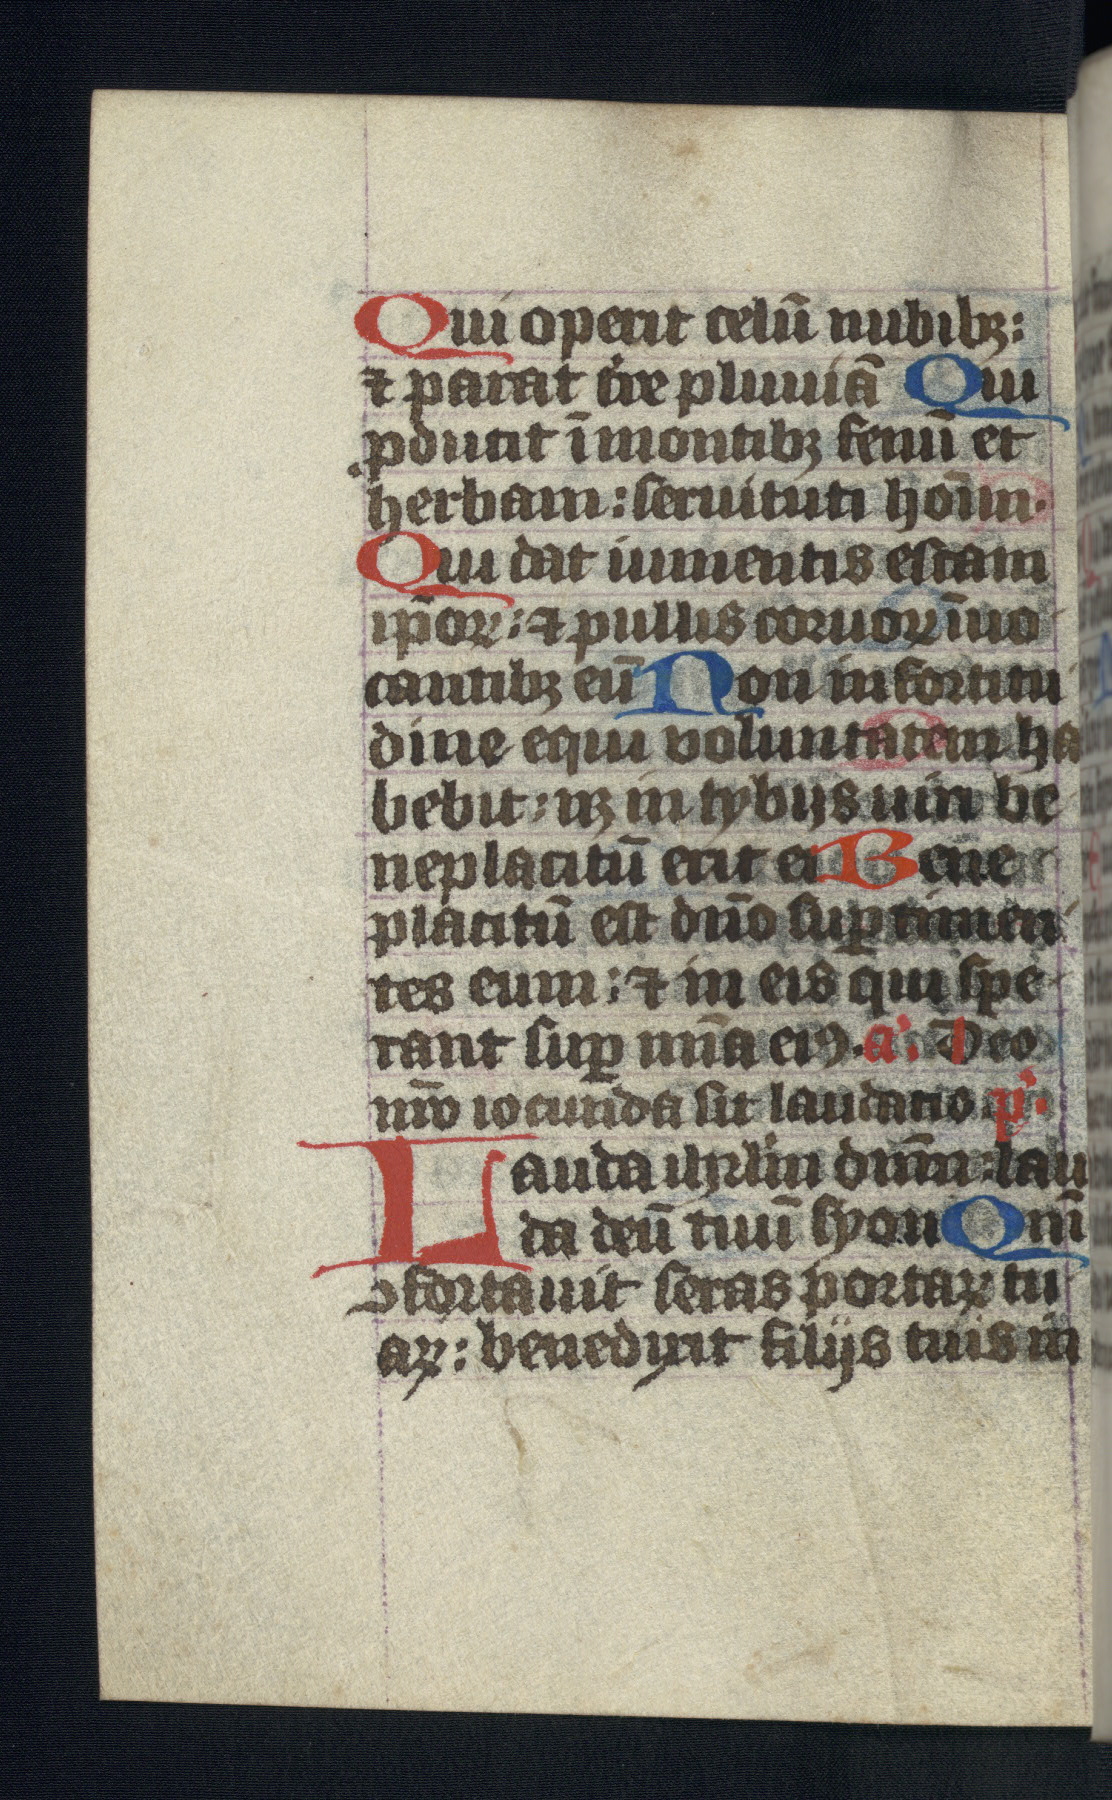 Qui operit celū nubibꝫ:
⁊ parat t̄re pluuiā Qui
ꝓducit ī montibꝫ fenū et
herbam: seruituti hoīm.
Qui dat iumentis escam
ip̄oꝝ: ⁊ pullis coruoꝝ īuo
cantibꝫ eū Non in fortitu
dine equi voluntatem ha
bebit: nꝫ in tybijs uiri be
neplacitū erit ei Bene
placitū est dn̄o suꝑ timen
tes eum: ⁊ in eis qui spe
rant suꝑ mīa eiꝰ. a'. Deo
nr̄o iocunda sit laudatio p'.
Lauda ihrl̄m dn̄m: lau
da deū tuū syon Qm̄
ꝯfortauit seras portaꝝ tu
aꝝ: benedixit filijs tuis in